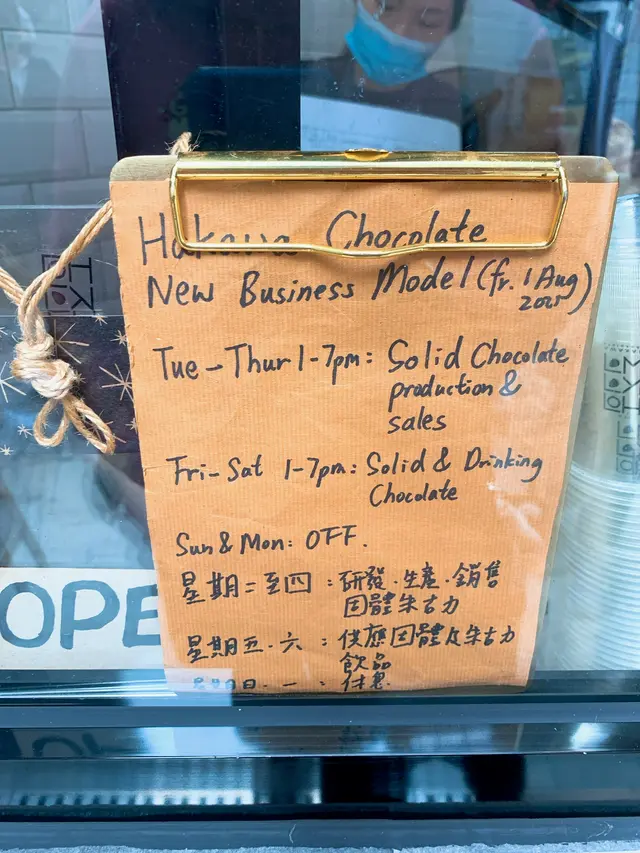 Hakawa Chocolate
New Business Model (fr. 1 Aug
2025)
Tue - Thur 1-7pm: Solid Chocolate
production &
sales
Fri - Sat 1-7pm: Solid & Drinking
Chocolate
Sun & Mon: OFF.
星期二至四：研發．生產．銷售
固體朱古力
星期五．六：供應固體及朱古力
飲品
星期日．一：休息
OPE